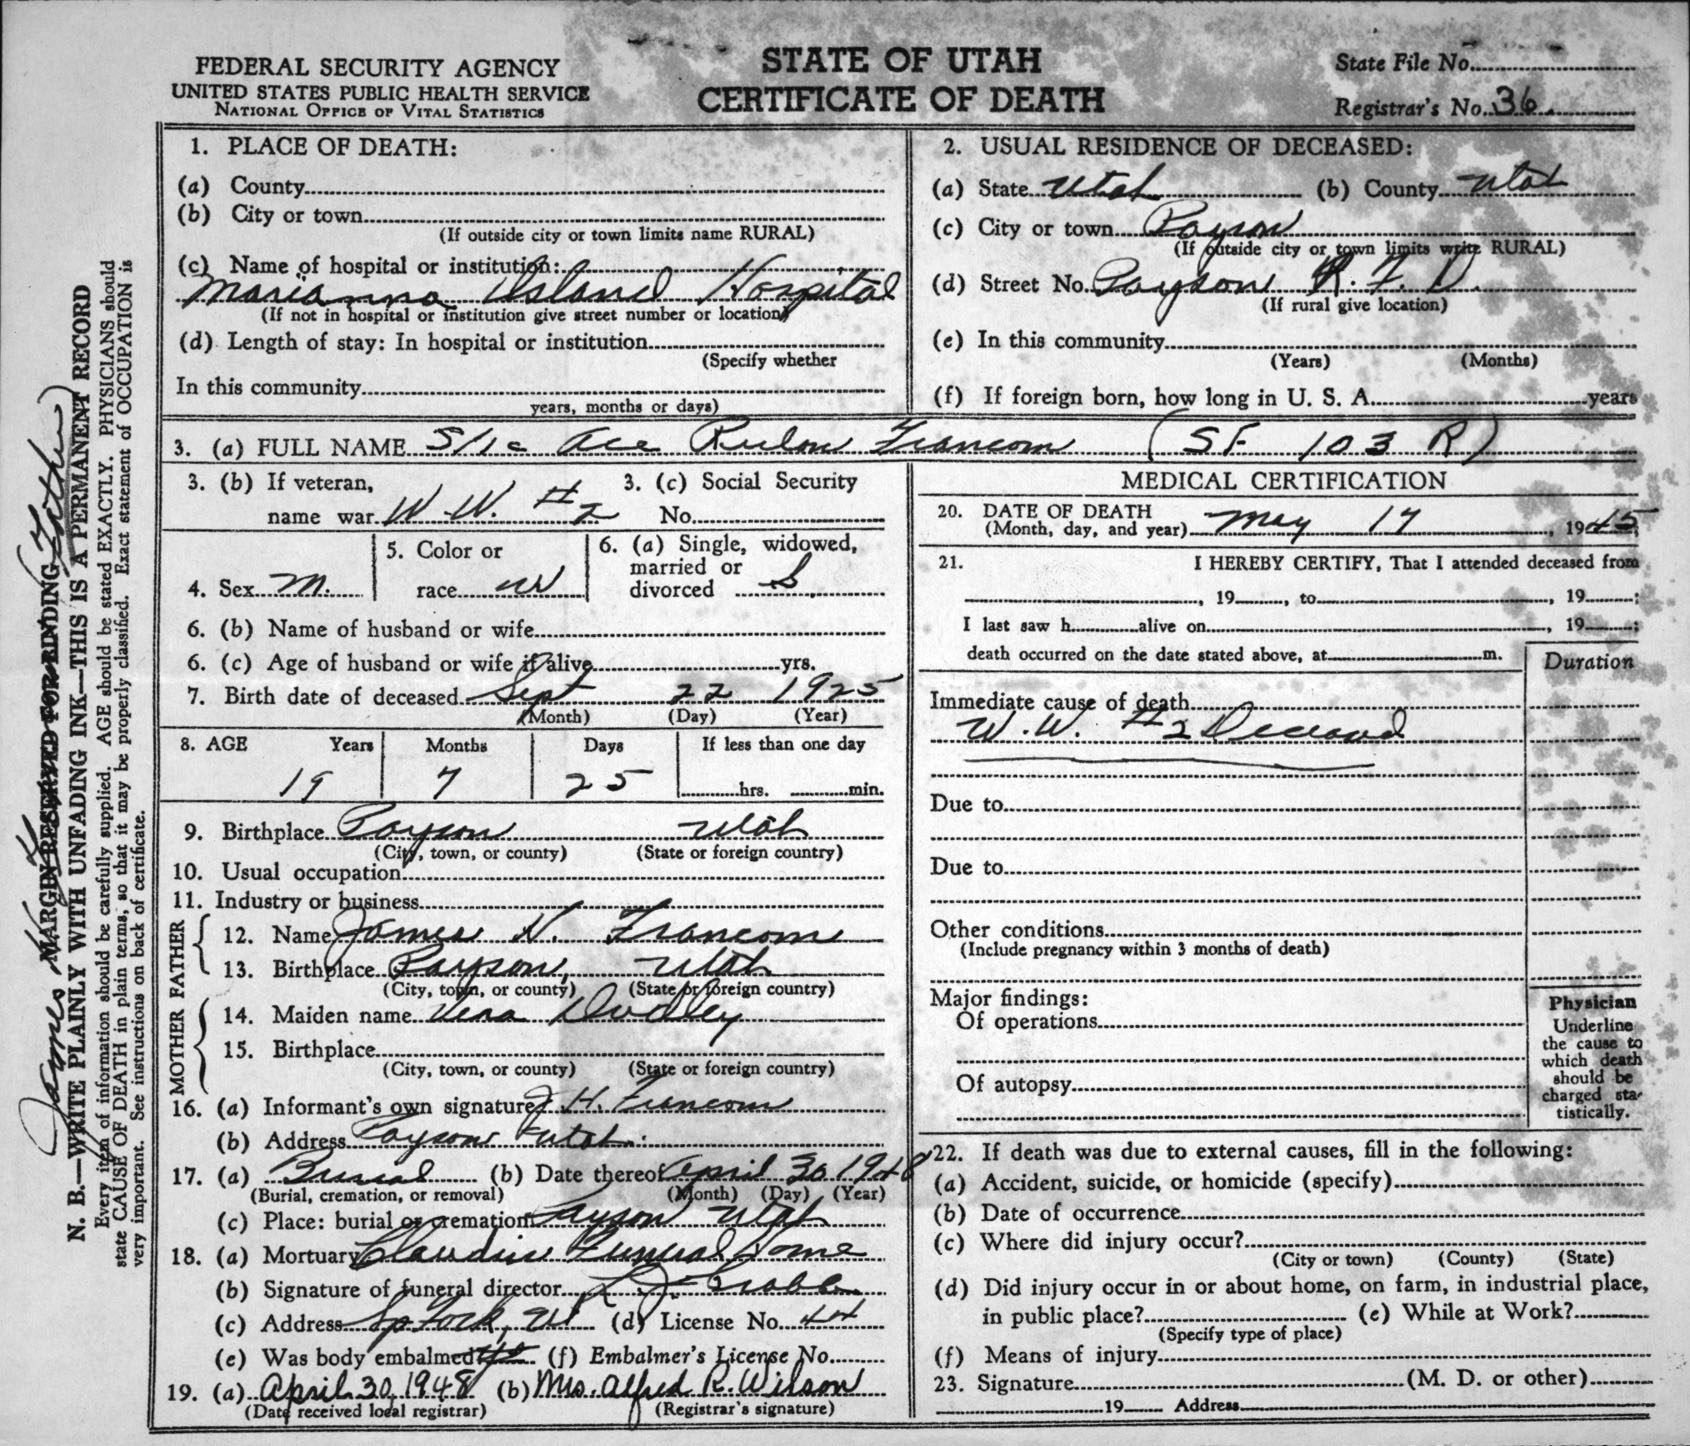 FEDERAL SECURITY AGENCY
UNITED STATES PUBLIC HEALTH SERVICE
NATIONAL OFFICE OF VITAL STATISTICS
STATE OF UTAH
CERTIFICATE OF DEATH
State File No.
Registrar's No. 36.
1. PLACE OF DEATH:
(a) County
(b) City or town
(If outside city or town limits name RURAL)
(c) Name of hospital or institution:
Marianna Island Hospital
(If not in hospital or institution give street number or location)
(d) Length of stay: In hospital or institution
(Specify whether
In this community
years, months or days)
2. USUAL RESIDENCE OF DECEASED:
(a) State Utah (b) County Utah
(c) City or town Payson
(If outside city or town limits write RURAL)
(d) Street No. Payson R. F. D.
(If rural give location)
(e) In this community
(Years) (Months)
(f) If foreign born, how long in U. S. A. years
3. (a) FULL NAME S/1c Ace Rulon Francom (SF 103 R)
3. (b) If veteran,
name war W. W. #2
3. (c) Social Security
No.
4. Sex M.
5. Color or
race W
6. (a) Single, widowed,
married or
divorced S
6. (b) Name of husband or wife
6. (c) Age of husband or wife if alive yrs.
7. Birth date of deceased Sept 22 1925
(Month) (Day) (Year)
8. AGE Years Months Days If less than one day
19 7 25 hrs. min.
9. Birthplace Payson Utah
(City, town, or county) (State or foreign country)
10. Usual occupation
11. Industry or business
FATHER
12. Name James H. Francom
13. Birthplace Payson, Utah
(City, town, or county) (State or foreign country)
MOTHER
14. Maiden name Vera Dudley
15. Birthplace
(City, town, or county) (State or foreign country)
16. (a) Informant's own signature J H. Francom
(b) Address Payson Utah.
17. (a) Burial (b) Date thereof April 30 1948
(Burial, cremation, or removal) (Month) (Day) (Year)
(c) Place: burial or cremation Payson Utah
18. (a) Mortuary Claudin Funeral Home
(b) Signature of funeral director
(c) Address Sp Fork, Ut (d) License No. 44
(e) Was body embalmed yes (f) Embalmer's License No.
19. (a) April 30, 1948 (b) Mrs. Alfred R. Wilson
(Date received local registrar) (Registrar's signature)
MEDICAL CERTIFICATION
20. DATE OF DEATH
(Month, day, and year) May 17, 1945
21. I HEREBY CERTIFY, That I attended deceased from
, 19 , to , 19 ;
I last saw h alive on , 19 ;
death occurred on the date stated above, at m.
Duration
Immediate cause of death
W. W. #2 Deceased
Due to
Due to
Other conditions
(Include pregnancy within 3 months of death)
Major findings:
Of operations
Of autopsy
Physician
Underline
the cause to
which death
should be
charged sta-
tistically.
22. If death was due to external causes, fill in the following:
(a) Accident, suicide, or homicide (specify)
(b) Date of occurrence
(c) Where did injury occur?
(City or town) (County) (State)
(d) Did injury occur in or about home, on farm, in industrial place,
in public place? (e) While at Work?
(Specify type of place)
(f) Means of injury
23. Signature (M. D. or other)
19 Address
James (Father)
MARGIN RESERVED FOR BINDING
N. B.—WRITE PLAINLY WITH UNFADING INK—THIS IS A PERMANENT RECORD
Every item of information should be carefully supplied. AGE should be stated EXACTLY. PHYSICIANS should
state CAUSE OF DEATH in plain terms, so that it may be properly classified. Exact statement of OCCUPATION is
very important. See instructions on back of certificate.